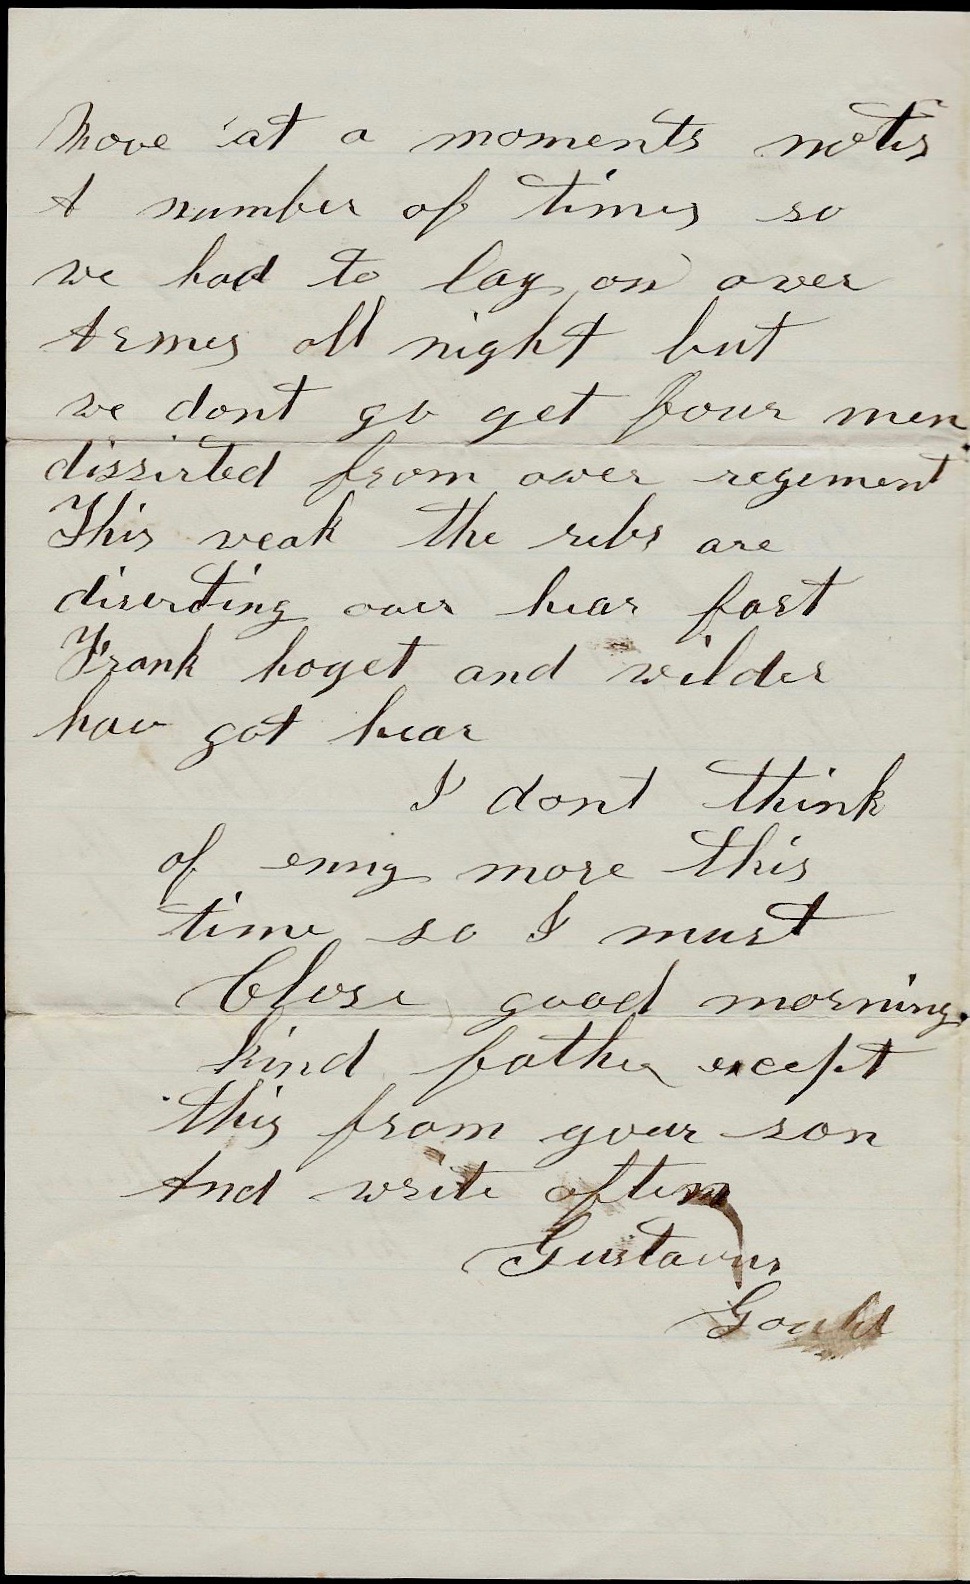 Move at a moments notis
A number of times so
we had to lay on ower
Armes all night but
we dont go get four men
dissirted from ower regement
This weak the rebs are
diserting over hear fast
Frank hoyet and wilder
hav got hear
I dont think
of enny more this
time so I must
Close good morning.
kind father except
this from your son
And write often
Gustavus
Gould